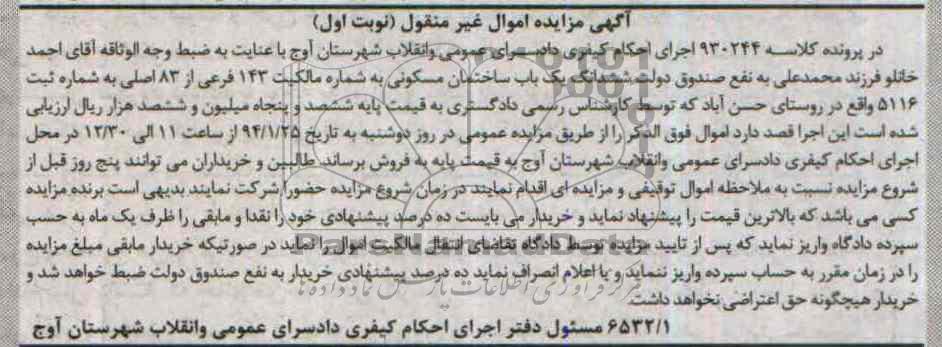 آگهی مزایده اموال غیر منقول (نوبت اول)
در پرونده کلاسه ۹۳۰۲۴۴ اجرای احکام کیفری دادسرای عمومی وانقلاب شهرستان آوج با عنایت به ضبط وجه الوثاقه آقای احمد
خانلو فرزند محمدعلی به نفع صندوق دولت ششدانگ یک باب ساختمان مسکونی به شماره مالکیت ۱۴۳ فرعی از ۸۳ اصلی به شماره ثبت
۵۱۱۶ واقع در روستای حسن آباد که توسط کارشناس رسمی دادگستری به قیمت پایه ششصد و پنجاه میلیون و ششصد هزار ریال ارزیابی
شده است این اجرا قصد دارد اموال فوق الذکر را از طریق مزایده عمومی در روز دوشنبه به تاریخ ۹۴/۱/۲۵ از ساعت ۱۱ الی ۱۲/۳۰ در محل
اجرای احکام کیفری دادسرای عمومی وانقلاب شهرستان آوج به قیمت پایه به فروش برساند طالبین و خریداران می توانند پنج روز قبل از
شروع مزایده نسبت به ملاحظه اموال توقیفی و مزایده ای اقدام نمایند در زمان شروع مزایده حضورا شرکت نمایند بدیهی است برنده مزایده
کسی می باشد که بالاترین قیمت را پیشنهاد نماید و خریدار می بایست ده درصد پیشنهادی خود را نقدا و مابقی را ظرف یک ماه به حسب
سپرده دادگاه واریز نماید که پس از تایید مزایده توسط دادگاه تقاضای انتقال مالکیت اموال را نماید در صورتیکه خریدار مابقی مبلغ مزایده
را در زمان مقرر به حساب سپرده واریز ننماید و یا اعلام انصراف نماید ده درصد پیشنهادی خریدار به نفع صندوق دولت ضبط خواهد شد و
خریدار هیچگونه حق اعتراضی نخواهد داشت.
۶۵۳۲/۱ مسئول دفتر اجرای احکام کیفری دادسرای عمومی وانقلاب شهرستان آوج
ParsNamadData
مرکز فرآوری اطلاعات پارس نماد داده ها